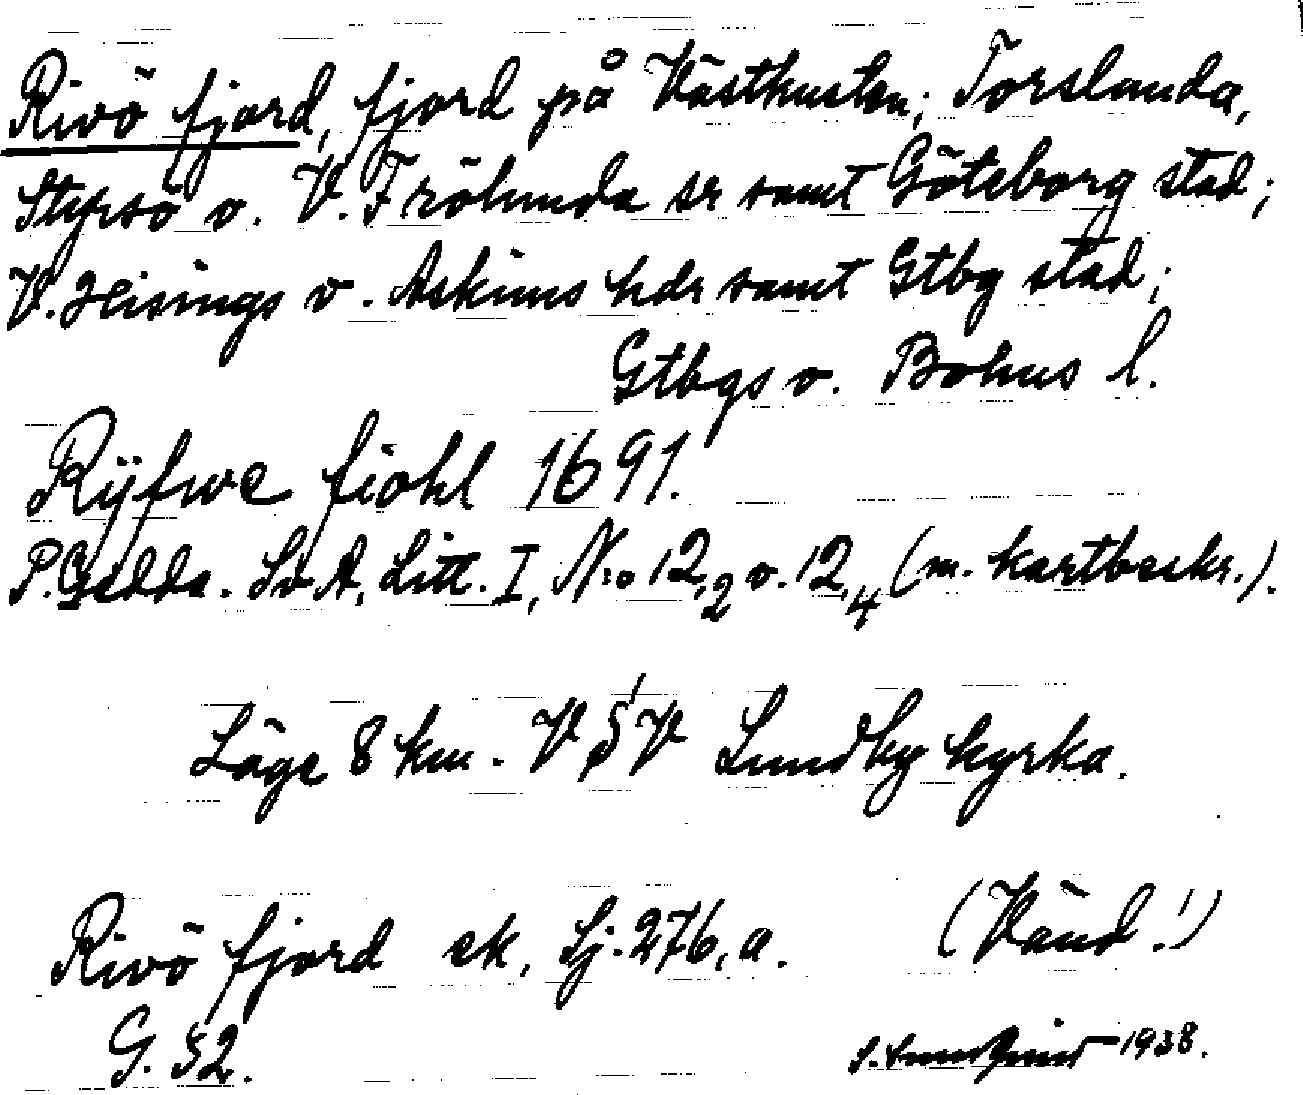 Rivö fjord, fjord på Västkusten; Torslanda,
Styrsö o. V. Frölunda sr samt Göteborg stad;
V. Hisings o. Askims hdr samt Gtbg stad;
Gtbgs o. Bohus l.
Rÿfwe fiohl 1691.
P. Gedda. Sv. A, Litt. I, No 12,2 o. 12,4 (m. kartbeskr.).
Läge 8 km. V S V Lundby kyrka.
Rivö fjord ek, Sj. 276, a. (Vänd!)
G. 52.
1938.